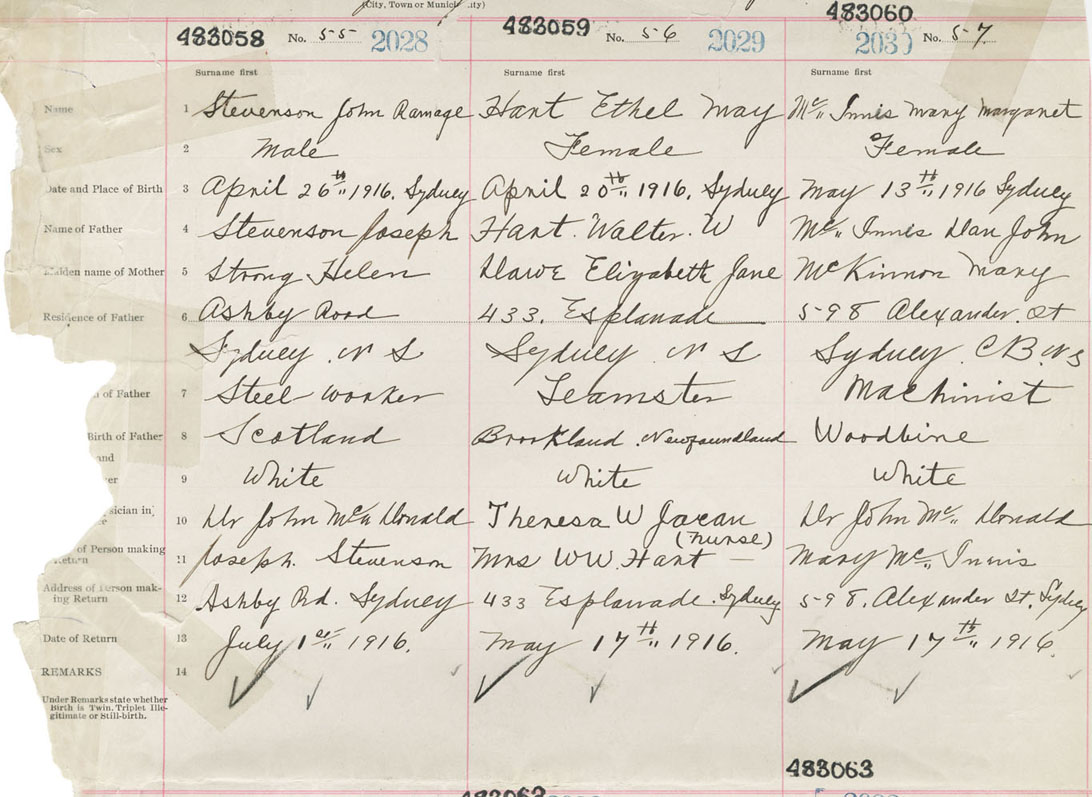 (City, Town or Municipality)
483058 No. 55 2028
483059 No. 56 2029
483060 2030 No. 57
Surname first Surname first Surname first
Name 1 Stevenson John Ramage Hart Ethel May Mc" Innis Mary Margaret
Sex 2 Male Female Female
Date and Place of Birth 3 April 26th" 1916. Sydney April 20th" 1916. Sydney May 13th" 1916 Sydney
Name of Father 4 Stevenson Joseph Hart. Walter. W Mc" Innis Dan John
Maiden name of Mother 5 Strong Helen Dawe Elizabeth Jane McKinnon Mary
Residence of Father 6 Ashby Road 433. Esplanade 598 Alexander. St
Sydney. N S Sydney. N S Sydney. C B. N S
of Father 7 Steel worker Teamster Machinist
Birth of Father 8 Scotland Brookland. Newfoundland Woodbine
and
er 9 White White White
sician in 10 Dr John Mc" Donald Theresa W (Nurse) Dr John Mc" Donald
of Person making Return 11 Joseph. Stevenson Mrs WW. Hart — Mary Mc" Innis
Address of Person making Return 12 Ashby Rd. Sydney 433 Esplanade. Sydney 598. Alexander St. Sydney
Date of Return 13 July 1st" 1916. May 17th" 1916. May 17th" 1916.
REMARKS 14
Under Remarks state whether
Birth is Twin, Triplet Ille-
gitimate or Still-birth.
483063
483062